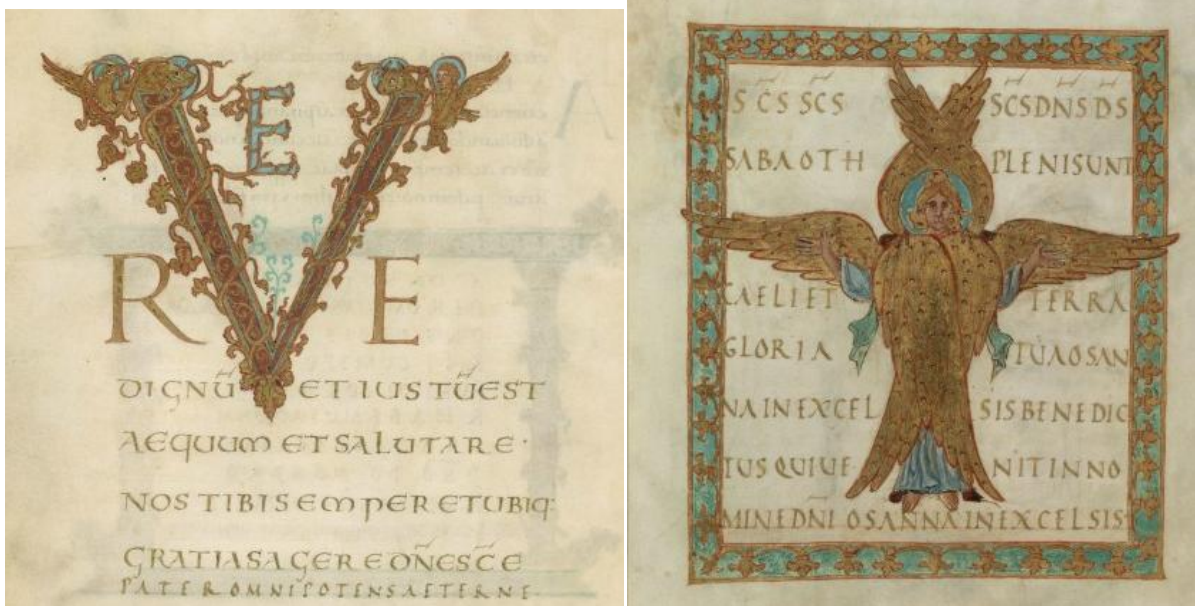 VE
RE
DIGNŪ ET IUSTŪ EST
AEQUUM ET SALUTARE·
NOS TIBI SEMPER ET UBIQ:
GRATIAS AGERE DN̄E SC̄E
PATER OMNIPOTENS AETERNE
SC̄S SC̄S SC̄S DN̄S D̄S
SABAOTH PLENI SUNT
CAELI ET TERRA
GLORIA TUA OSAN
NA IN EXCELSIS BENEDIC
TUS QUI UENIT IN NO
MINE DN̄I OSANNA IN EXCELSIS